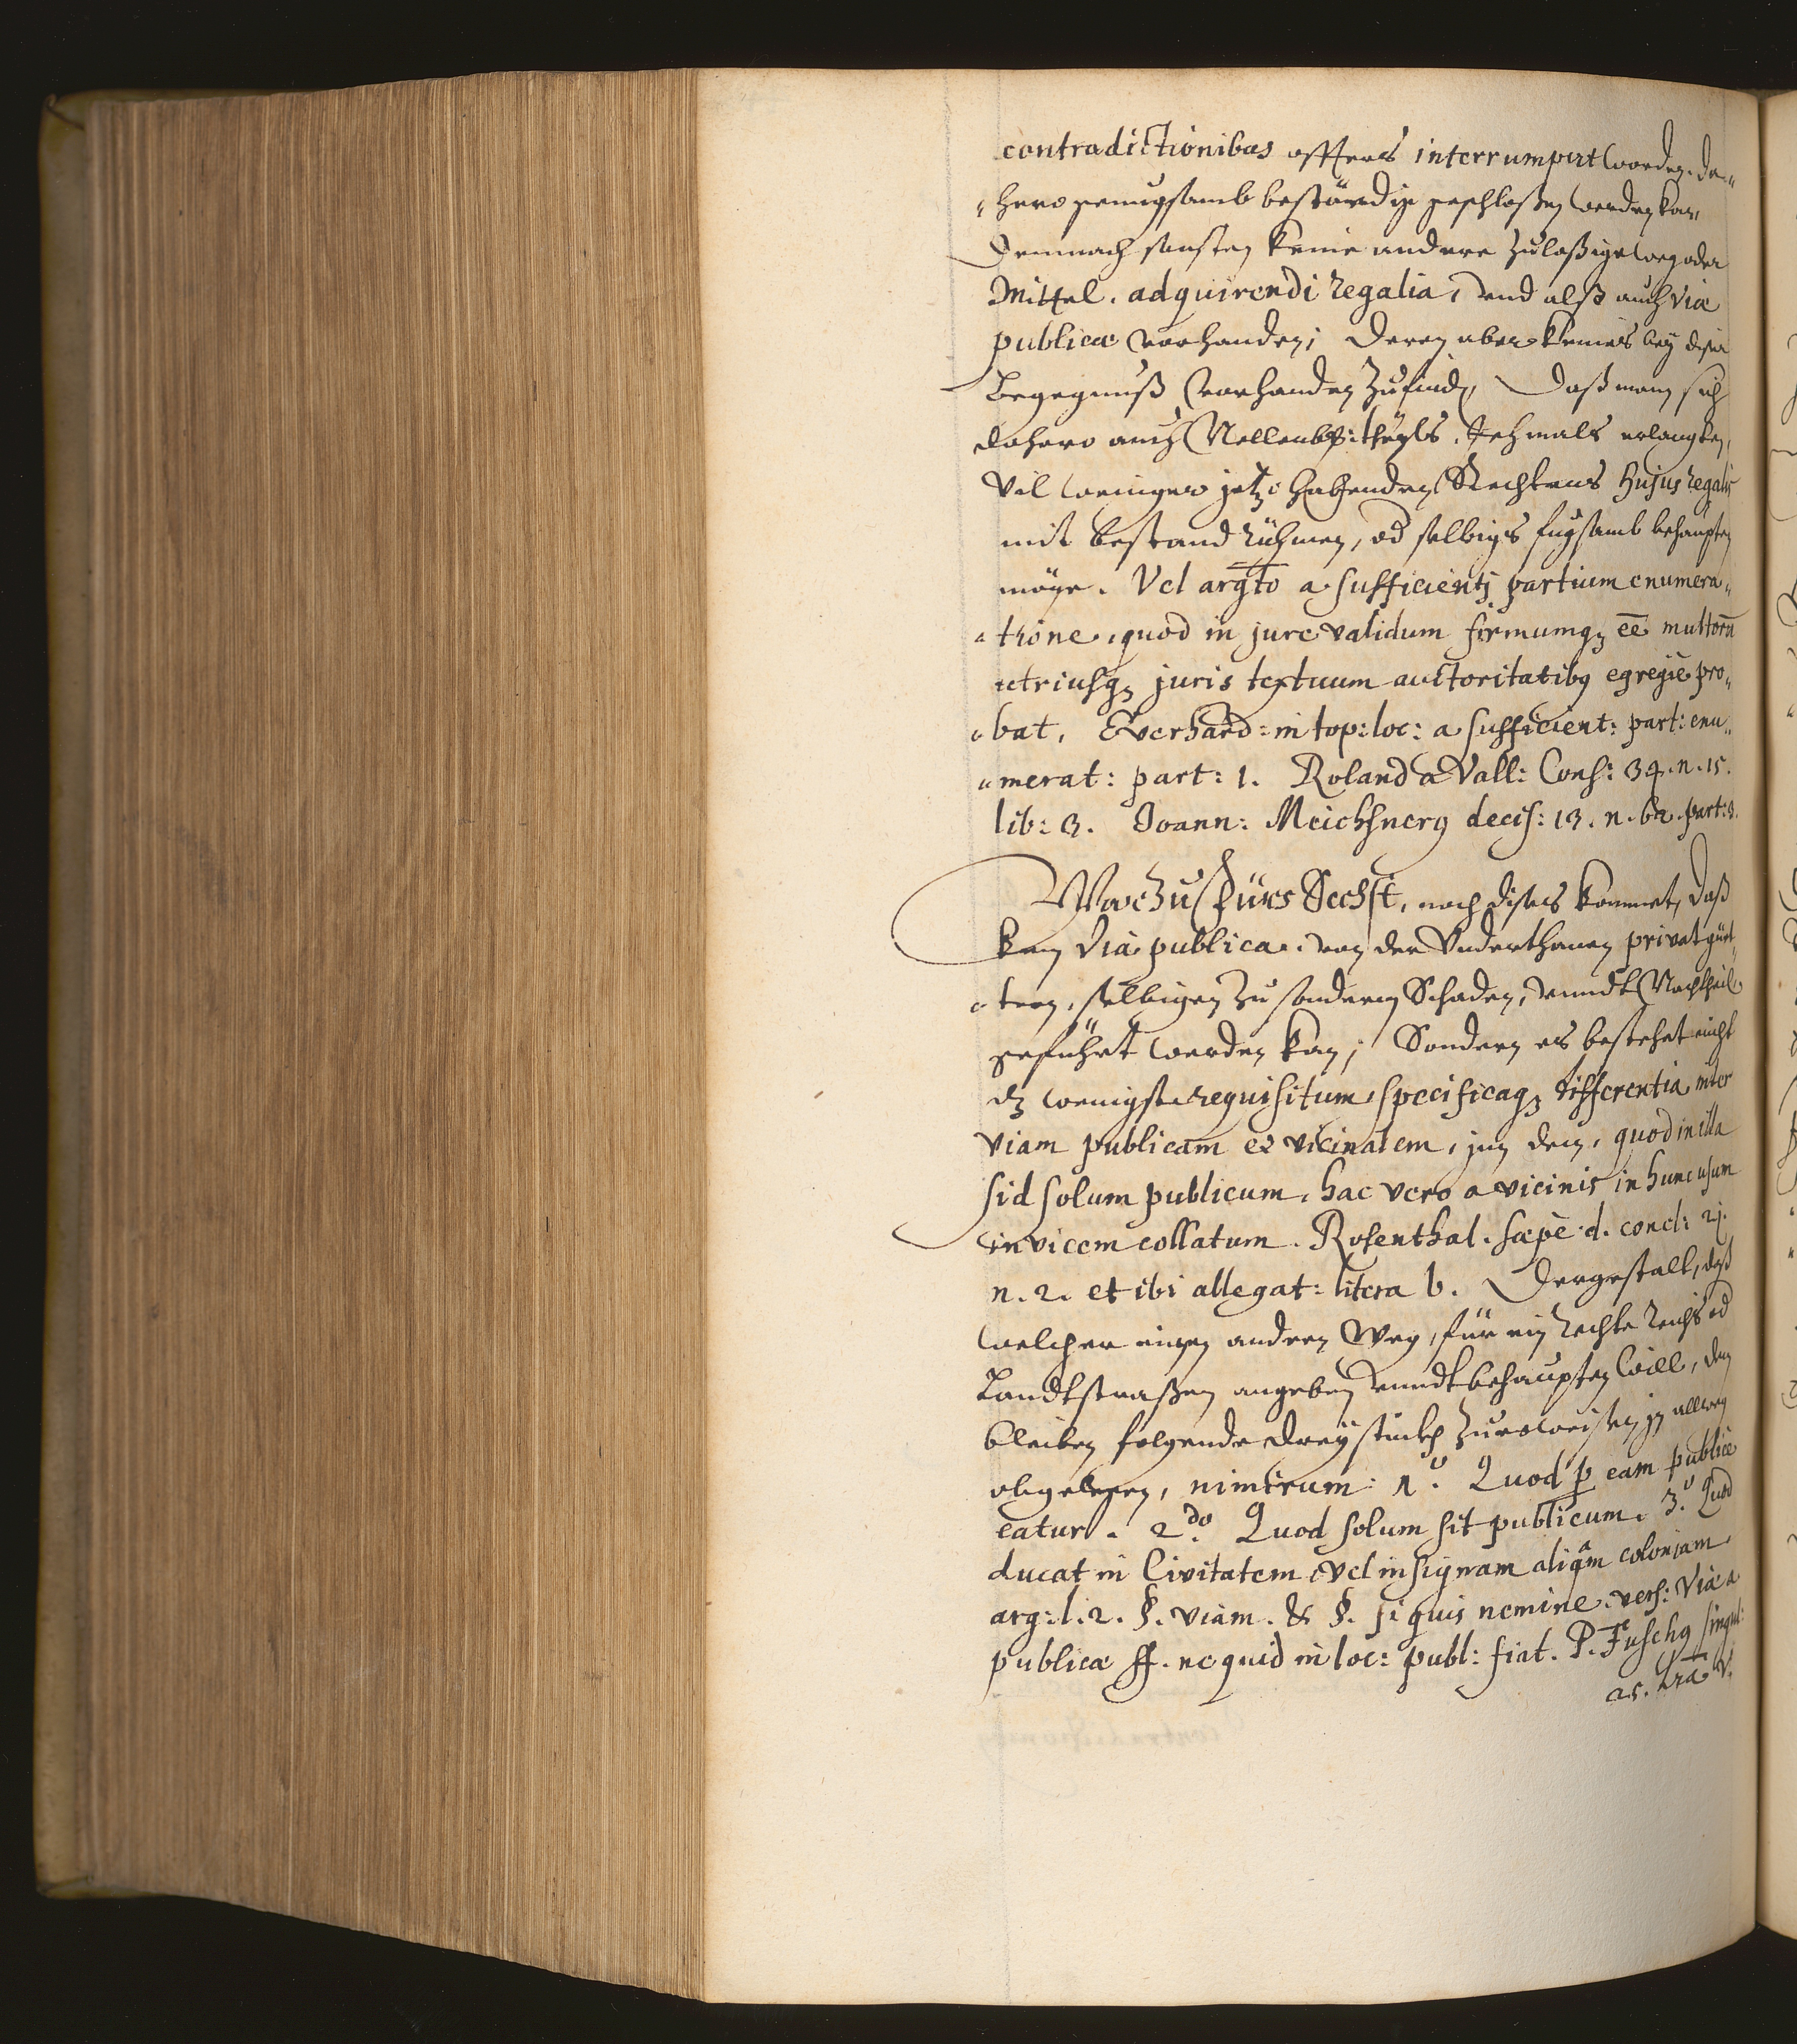 contradictionibus öffters interrumpirt worden. da„
„hero genugsamb beständig geschloßen werden kan,
Demnach sonsten keine andere zuläßige weg oder
Mittel. adquirendi regalia, vnd alß auch viæ
publicæ vorhanden; Deren aber keines bey diser
Begegnuß vorhanden zufinden, Daß man sich
dahero auch Nellenb: theyls. Jehmals erlangten,
Vil weniger jetzo habenden Rechtens hujus regalis
mit bestand rühmen, od selbiges fugsamb behaupten
möge. Vel argto a sufficienti partium enumera„
„tione, quod in jure validum firmumq; eē multorū
utriusq; juris textuum auctoritatibq egregiè pro„
„bat, Everhard: in top: loc: a sufficient: part: enu„
„merat: part: 1. Roland a Vall: Cons: 34. n. 15.
lib: 3. Joann: Meichsnerq decis: 13. n. 62. part: 3.
Warzu fürs Sechst, noch dises kommet, daß
kein via publica. von der Vnderthanen privat güet„
„tern, selbigen zu sonderm Schaden, vnndt Nachtheil
geführt werden kan; Sondern es bestehet nicht
dz wenigste requisitum, specificaq; differentia inter
viam publicam et vicinalem, jnn dem, quod in illa
sid solum publicum, hac vero a vicinis in hunc usum
invicem collatum. Rosenthal. sæpè d. concl: 21.
n. 2. et ibi allegat: litera b. Dergestalt, daß
welcher einen andern Weg, für ein rechte Reichs od
Landtstraßen angeben vnndt behaupten will, dem
bleiben folgende drey stückh zuerweisen jn allweg
obgelegen, nimirum: 1º. Quod p eam publicè
eatur. 2do. Quod solum sit publicum. 3º. Quod
ducat in Civitatem, vel insignam aliqm coloniam
arg: l. 2. §. viam. & §. si quis nemine. vers: Viæ a
publicæ ff. ne quid in loc: publ: fiat. P. Fuschq singul:
as. lra V.